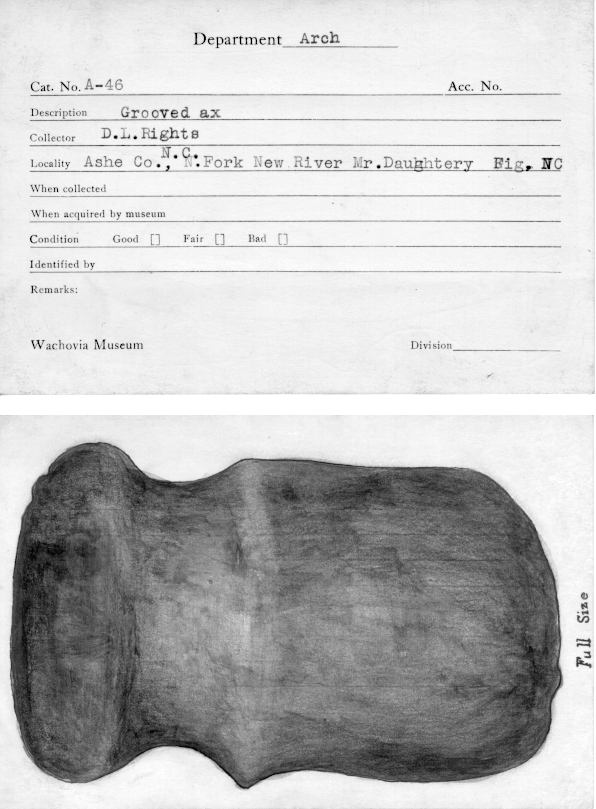 Department Arch
Cat. No. A-46 Acc. No.
Description Grooved ax
Collector D.L.Rights
N.C.
Locality Ashe Co., N.Fork New River Mr.Daughtery Fig, NC
When collected
When acquired by museum
Condition Good [] Fair [] Bad []
Identified by
Remarks:
Wachovia Museum Division
Full Size